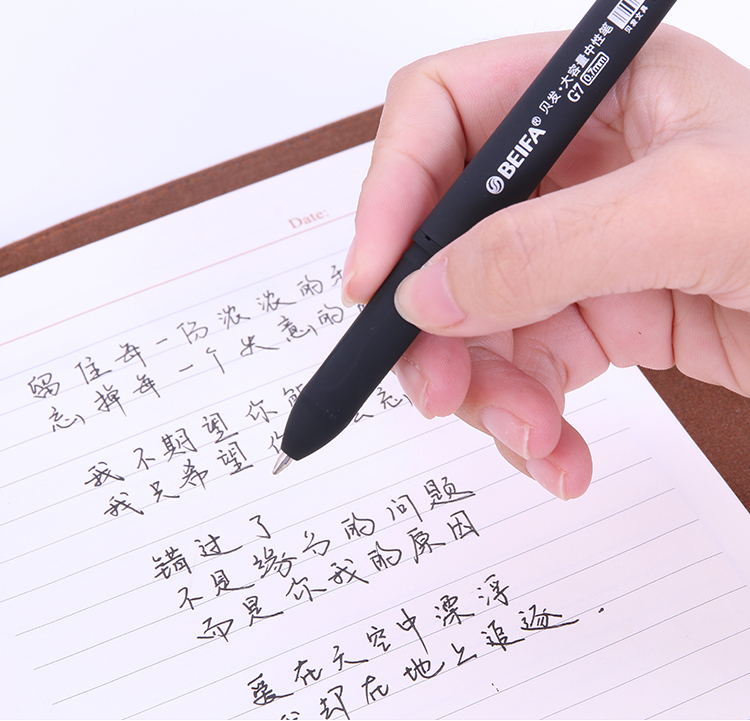 贝发文具
贝发·大容量中性笔
G7 0.7mm
BEIFA®
Date:
留住每一份浓浓的
忘掉每一个失意的
我不期望你能
我只希望你 忘
错过了
不是缘分的问题
而是你我的原因
爱在天空中漂浮
我却在地上追逐.